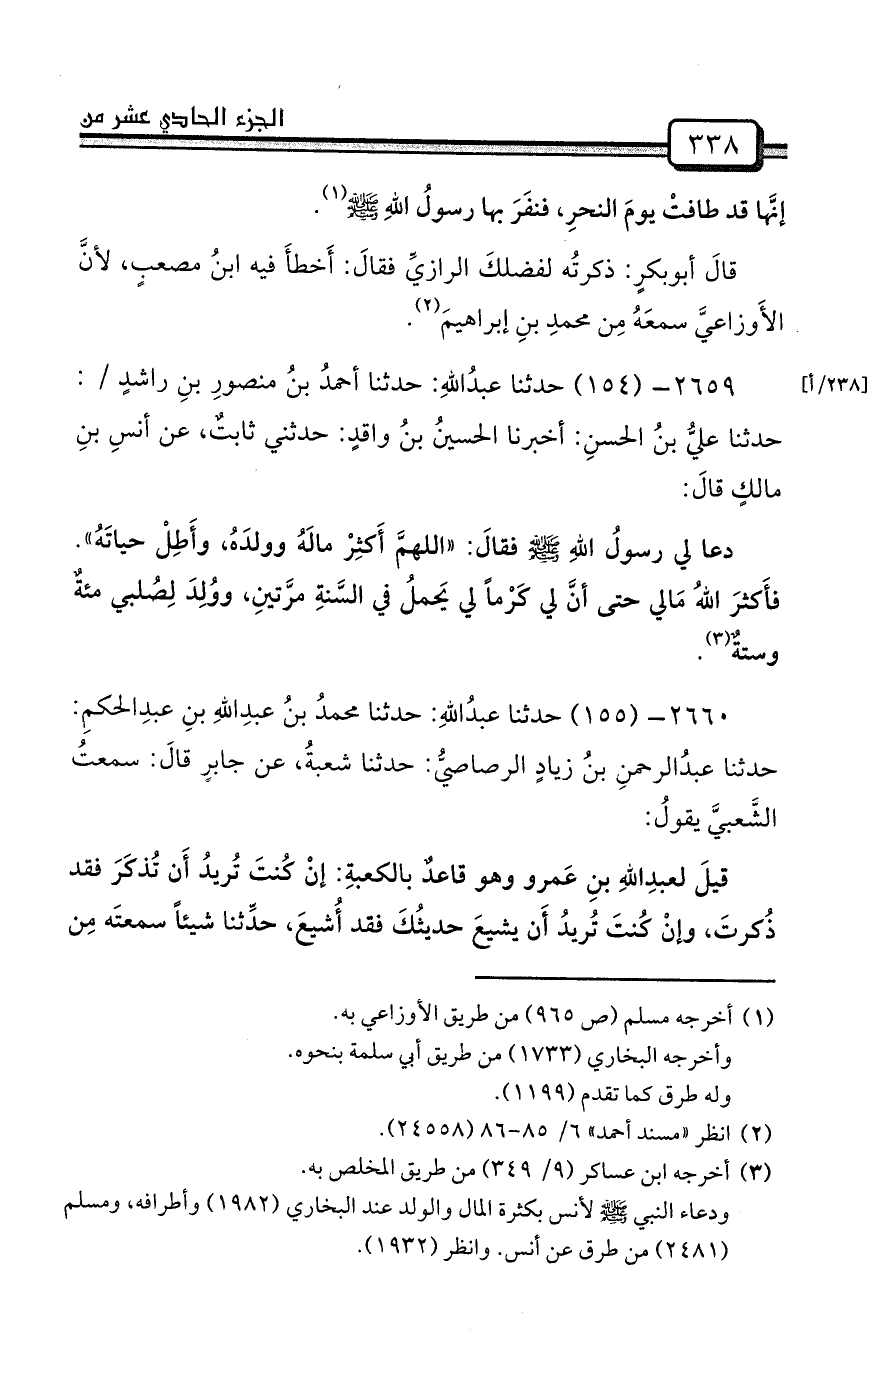 الجزء الحادي عشر من
٣٣٨
إنَّها قد طافتْ يومَ النحرِ، فنفَرَ بها رسولُ اللهِ ﷺ(١).
قالَ أبوبكرٍ: ذكرتُه لفضلكَ الرازيِّ فقالَ: أَخطأَ فيه ابنُ مصعبٍ، لأنَّ
الأَوزاعيَّ سمعَهُ مِن محمدِ بنِ إبراهيمَ(٢).
[٢٣٨/أ] ٢٦٥٩- (١٥٤) حدثنا عبدُاللهِ: حدثنا أحمدُ بنُ منصورِ بنِ راشدٍ / :
حدثنا عليُّ بنُ الحسنِ: أخبرنا الحسينُ بنُ واقدٍ: حدثني ثابتٌ، عن أنسِ بنِ
مالكٍ قالَ:
دعا لي رسولُ اللهِ ﷺ فقالَ: «اللهمَّ أَكثِرْ مالَهُ وولدَهُ، وأَطِلْ حياتَهُ».
فأَكثرَ اللهُ مَالي حتى أنَّ لي كَرْماً لي يَحملُ في السَّنةِ مرَّتينِ، ووُلِدَ لِصُلبي مئةٌ
وستةٌ(٣).
٢٦٦٠- (١٥٥) حدثنا عبدُاللهِ: حدثنا محمدُ بنُ عبدِاللهِ بنِ عبدِالحكمِ:
حدثنا عبدُالرحمنِ بنُ زيادٍ الرصاصيُّ: حدثنا شعبةُ، عن جابرٍ قالَ: سمعتُ
الشَّعبيَّ يقولُ:
قيلَ لعبدِاللهِ بنِ عَمرو وهو قاعدٌ بالكعبةِ: إنْ كُنتَ تُريدُ أَن تُذكَرَ فقد
ذُكرتَ، وإنْ كُنتَ تُريدُ أَن يشيعَ حديثُكَ فقد أُشيعَ، حدِّثنا شيئاً سمعتَه مِن
(١) أخرجه مسلم (ص ٩٦٥) من طريق الأوزاعي به.
وأخرجه البخاري (١٧٣٣) من طريق أبي سلمة بنحوه.
وله طرق كما تقدم (١١٩٩).
(٢) انظر «مسند أحمد» ٦/ ٨٥-٨٦ (٢٤٥٥٨).
(٣) أخرجه ابن عساكر (٩/ ٣٤٩) من طريق المخلص به.
ودعاء النبي ﷺ لأنس بكثرة المال والولد عند البخاري (١٩٨٢) وأطرافه، ومسلم
(٢٤٨١) من طرق عن أنس. وانظر (١٩٣٢).